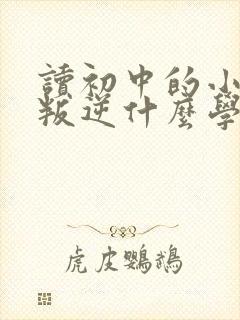 讀初中的小
叛逆什麼學
虎皮鸚鵡